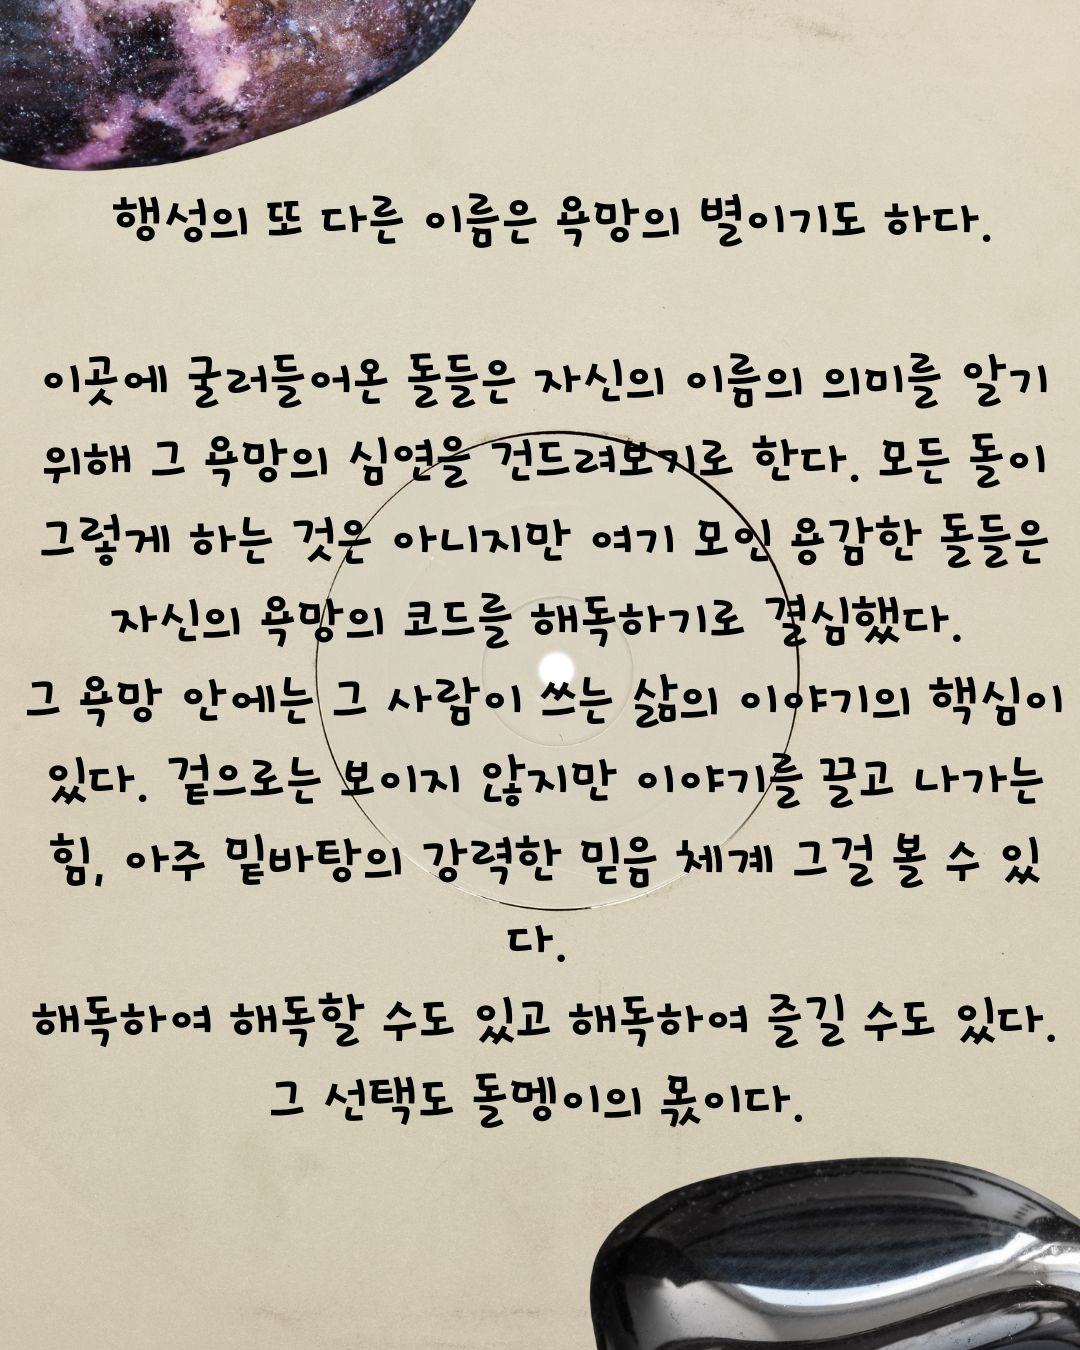 행성의 또 다른 이름은 욕망의 별이기도 하다.
이곳에 굴러들어온 돌들은 자신의 이름의 의미를 알기
위해 그 욕망의 심연을 건드려보기로 한다. 모든 돌이
그렇게 하는 것은 아니지만 여기 모인 용감한 돌들은
자신의 욕망의 코드를 해독하기로 결심했다.
그 욕망 안에는 그 사람이 쓰는 삶의 이야기의 핵심이
있다. 겉으로는 보이지 않지만 이야기를 끌고 나가는
힘, 아주 밑바탕의 강력한 믿음 체계 그걸 볼 수 있
다.
해독하여 해독할 수도 있고 해독하여 즐길 수도 있다.
그 선택도 돌멩이의 몫이다.